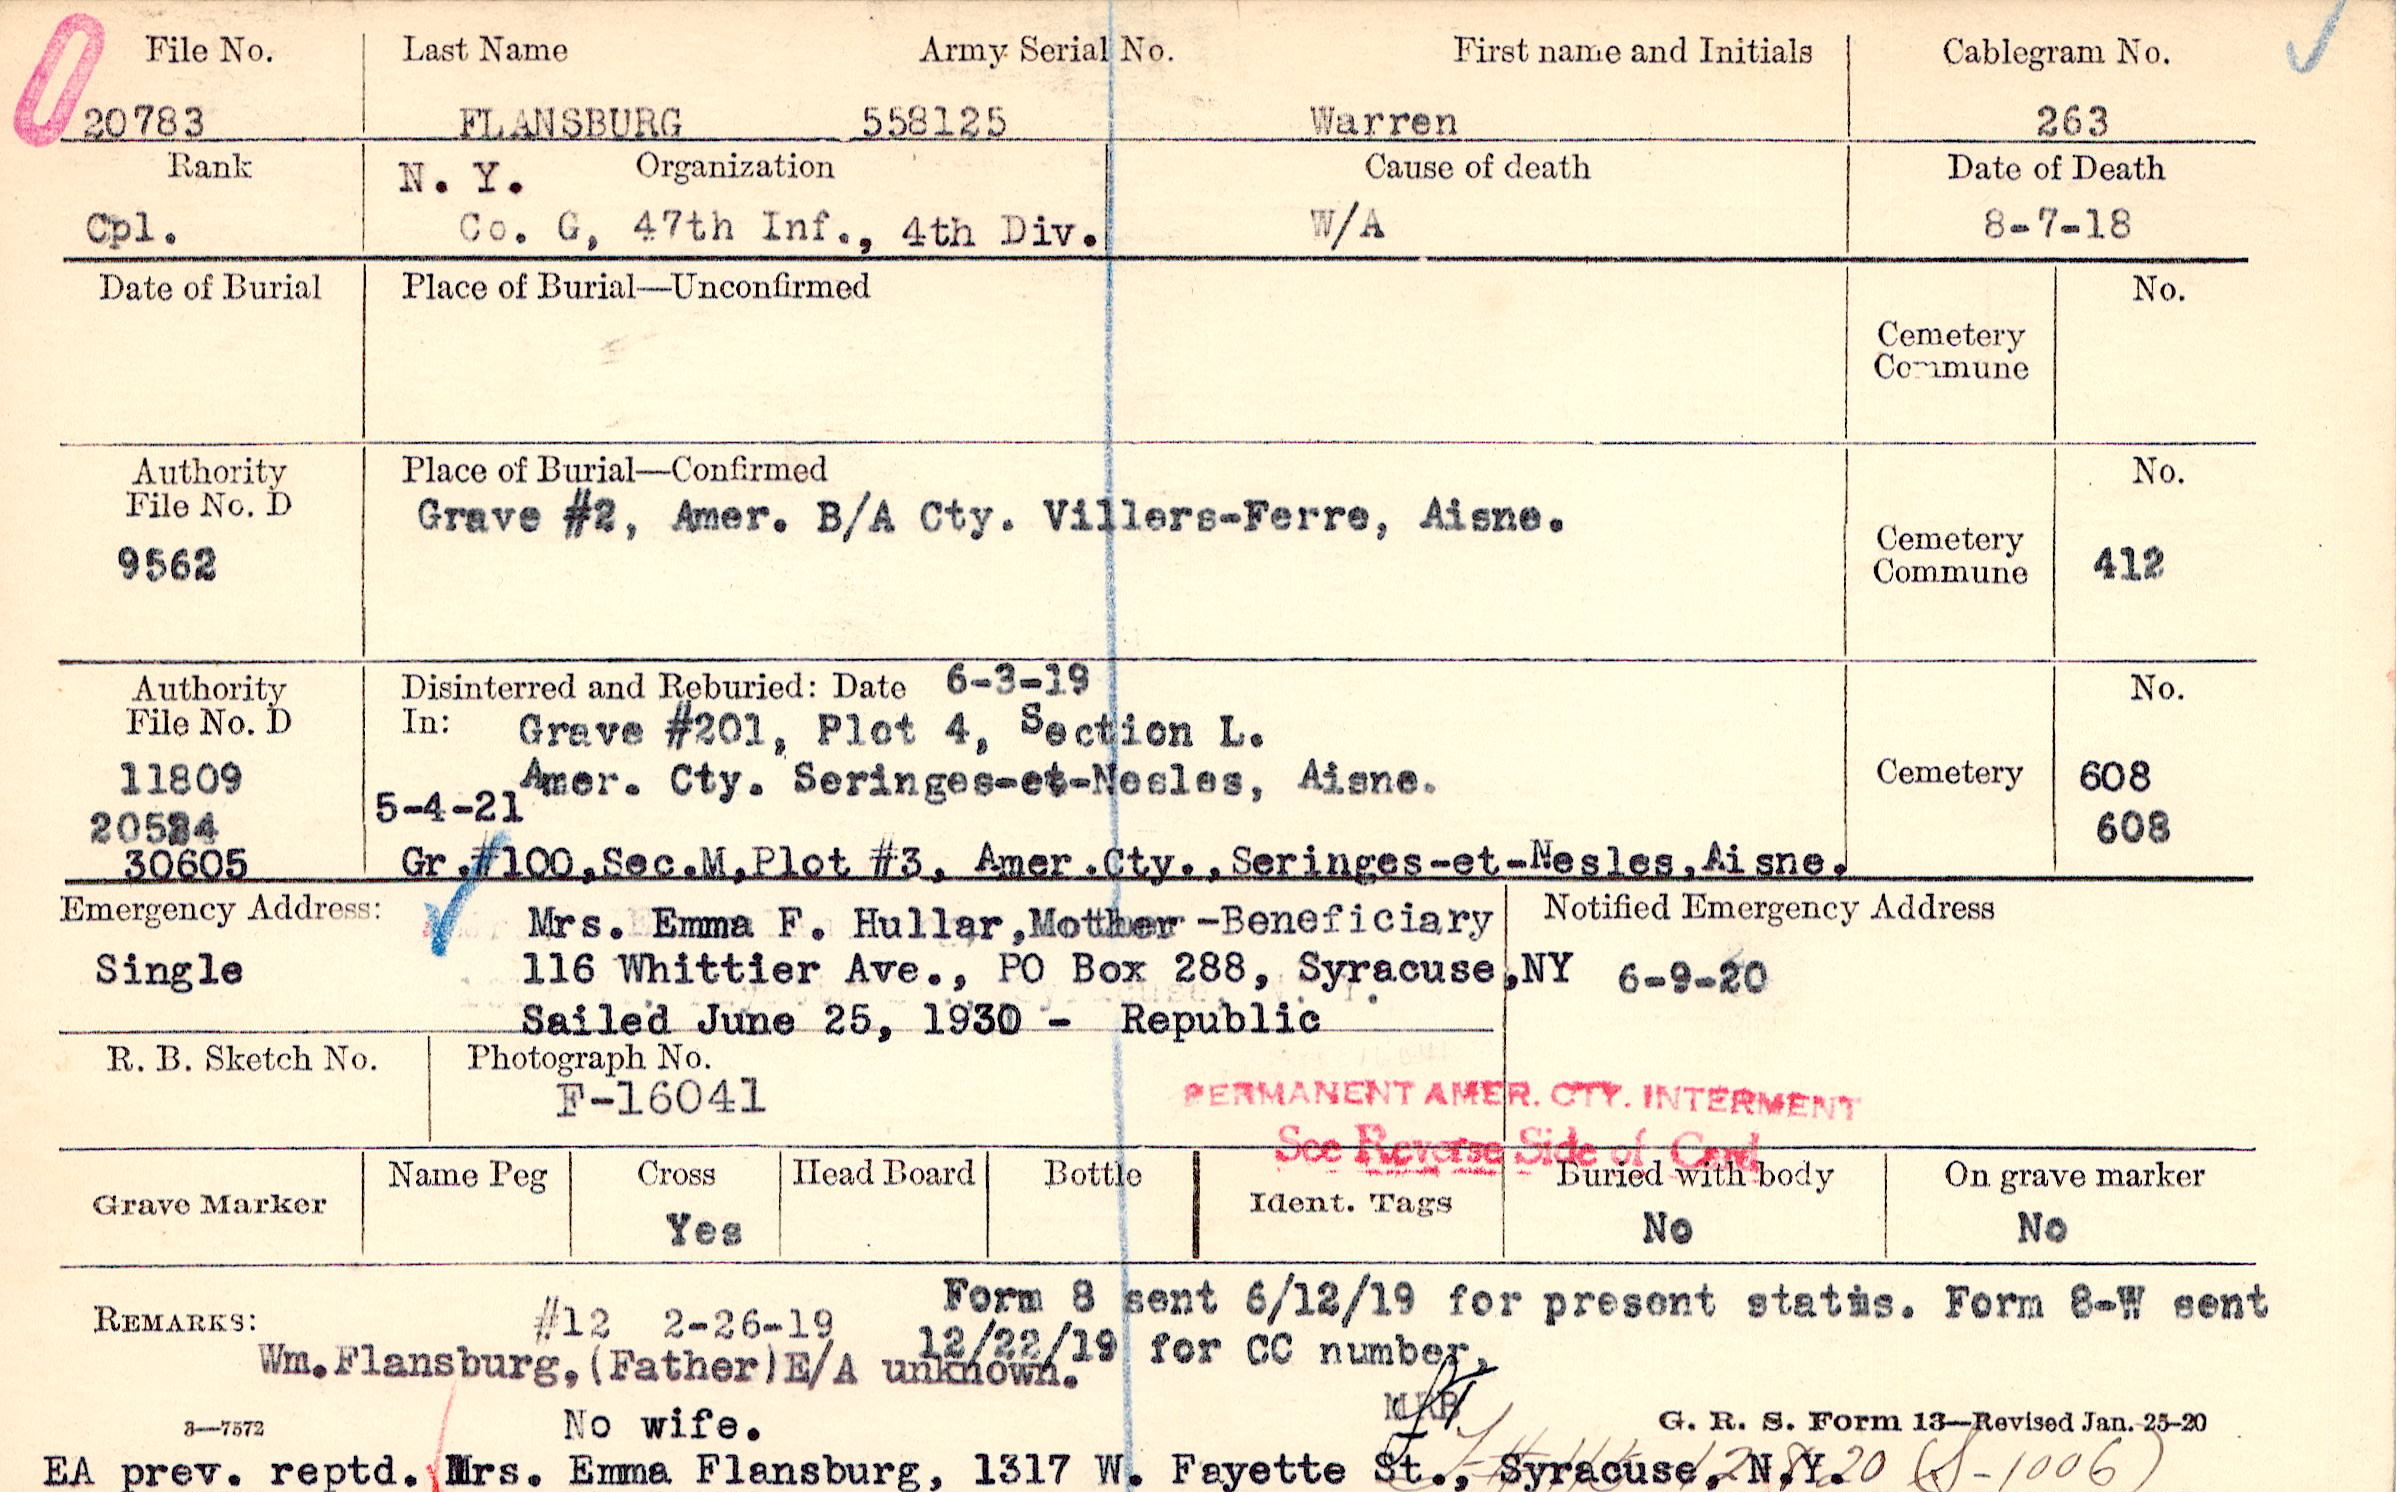 File No. Last Name Army Serial No. First name and Initials Cablegram No.
20783 FLANSBURG 558125 Warren 263
Rank N. Y. Organization Cause of death Date of Death
Cpl. Co. G, 47th Inf., 4th Div. W/A 8-7-18
Date of Burial Place of Burial—Unconfirmed No.
Cemetery
Commune
Authority Place of Burial—Confirmed No.
File No. D Grave #2, Amer. B/A Cty. Villers-Ferre, Aisne.
9562 Cemetery
Commune 412
Authority Disinterred and Reburied: Date 6-3-19 No.
File No. D In: Grave #201, Plot 4, Section L.
11809 Amer. Cty. Seringes-et-Nesles, Aisne. Cemetery 608
5-4-21
20524 608
30605 Gr.#100,Sec.M,Plot #3, Amer.Cty.,Seringes-et-Nesles,Aisne.
Emergency Address: Mrs. Emma F. Hullar,Mother-Beneficiary Notified Emergency Address
Single 116 Whittier Ave., PO Box 288, Syracuse,NY 6-9-20
Sailed June 25, 1930 - Republic
R. B. Sketch No. Photograph No.
F-16041
PERMANENT AMER. CTY. INTERMENT
See Reverse Side of Card
Grave Marker Name Peg Cross Head Board Bottle Ident. Tags Buried with body On grave marker
Yes No No
Form 8 sent 6/12/19 for present status. Form 8-W sent
REMARKS: #12 2-26-19 12/22/19 for CC number,
Wm.Flansburg,(Father)E/A unknown.
MRB
3—7572 No wife. G. R. S. Form 13—Revised Jan. 25-20
EA prev. reptd. Mrs. Emma Flansburg, 1317 W. Fayette St., Syracuse, N.Y. 20 (S-1006)